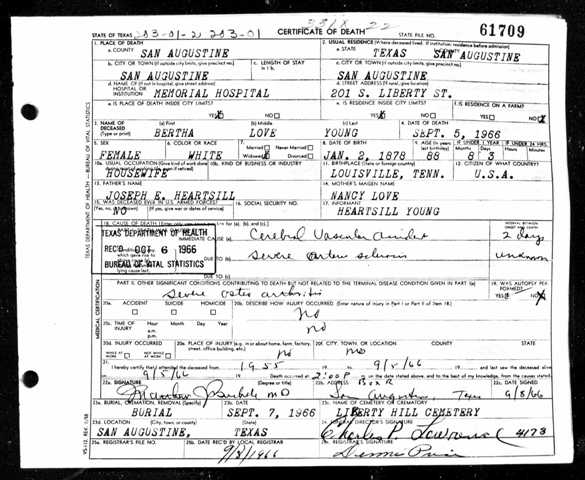 STATE OF TEXAS 203-01-2 203-01 CERTIFICATE OF DEATH STATE FILE NO. 61709
1. PLACE OF DEATH 2. USUAL RESIDENCE (Where deceased lived. If institution: residence before admission)
a. COUNTY SAN AUGUSTINE a. STATE TEXAS SAN AUGUSTINE
b. CITY OR TOWN (If outside city limits, give precinct no.) c. LENGTH OF STAY in 1 b. c. CITY OR TOWN (If outside city limits, give precinct no.)
SAN AUGUSTINE SAN AUGUSTINE
d. NAME OF (If not in hospital, give street address) HOSPITAL OR INSTITUTION MEMORIAL HOSPITAL d. STREET ADDRESS (If rural, give location) 201 S. LIBERTY ST.
e. IS PLACE OF DEATH INSIDE CITY LIMITS? YES NO e. IS RESIDENCE INSIDE CITY LIMITS? YES NO f. IS RESIDENCE ON A FARM? YES NO
3. NAME OF DECEASED (Type or print) (a) First (b) Middle (c) Last 4. DATE OF DEATH
BERTHA LOVE YOUNG SEPT. 5, 1966
5. SEX 6. COLOR OR RACE 7. Married Never Married Widowed Divorced 8. DATE OF BIRTH 9. AGE (In years last birthday) IF UNDER 1 YEAR IF UNDER 24 HRS.
FEMALE WHITE JAN. 2, 1878 88 8 3
10a. USUAL OCCUPATION (Give kind of work done 10b. KIND OF BUSINESS OR INDUSTRY 11. BIRTHPLACE (State or foreign country) 12. CITIZEN OF WHAT COUNTRY?
HOUSEWIFE LOUISVILLE, TENN. U.S.A.
13. FATHER'S NAME 14. MOTHER'S MAIDEN NAME
JOSEPH E. HEARTSILL NANCY LOVE
15. WAS DECEASED EVER IN U.S. ARMED FORCES? 16. SOCIAL SECURITY NO. 17. INFORMANT
NO HEARTSILL YOUNG
18. CAUSE OF DEATH INTERVAL BETWEEN ONSET AND DEATH
TEXAS DEPARTMENT OF HEALTH IMMEDIATE CAUSE (a) Cerebral Vascular 2 days
REC'D OCT 6 1966 DUE TO (b) Severe unknown
BUREAU OF VITAL STATISTICS DUE TO (c)
lying cause last.
PART II. OTHER SIGNIFICANT CONDITIONS CONTRIBUTING TO DEATH BUT NOT RELATED TO THE TERMINAL DISEASE CONDITION GIVEN IN PART I(a) 19. WAS AUTOPSY PERFORMED? YES NO
Severe osteo arthritis
20a. ACCIDENT SUICIDE HOMICIDE 20b. DESCRIBE HOW INJURY OCCURRED. (Enter nature of injury in Part I or Part II of Item 18.)
no
20c. TIME OF INJURY Hour Month Day Year a.m. p.m. no
20d. INJURY OCCURRED WHILE AT WORK NOT WHILE AT WORK 20e. PLACE OF INJURY (e.g. in or about home, farm, factory, street, office building, etc.) no 20f. CITY, TOWN, OR LOCATION no COUNTY STATE
21. I hereby certify that I attended the deceased from 1955 19 to 9/5/66 19 and last saw the deceased alive
on 9/5/66 Death occurred at 2:00 P m. on the date stated above, and to the best of my knowledge, from the causes stated.
22a. SIGNATURE (Degree or title) 22b. ADDRESS Box R 22c. DATE SIGNED
MD San Augustine Texas 9/8/66
23a. BURIAL, CREMATION, REMOVAL (Specify) 23b. DATE 23c. NAME OF CEMETERY OR CREMATORY
BURIAL SEPT. 7, 1966 LIBERTY HILL CEMETERY
23d. LOCATION (City, town, or county) (State) 24. FUNERAL DIRECTOR'S SIGNATURE
SAN AUGUSTINE, TEXAS Charles P. Lawrence 4173
25a. REGISTRAR'S FILE NO. 25b. DATE REC'D BY LOCAL REGISTRAR 25c. REGISTRAR'S SIGNATURE
9/8/1966
TEXAS DEPARTMENT OF HEALTH — BUREAU OF VITAL STATISTICS
MEDICAL CERTIFICATION